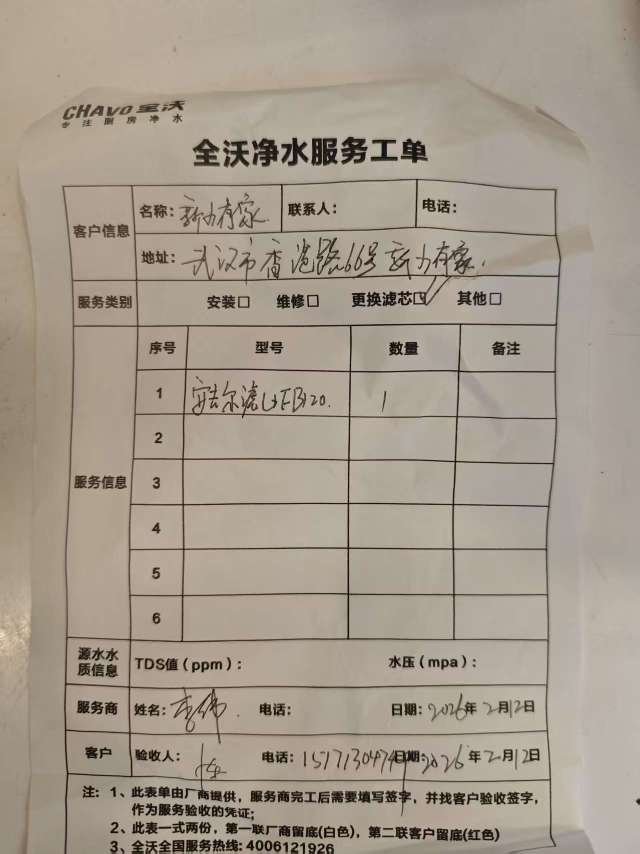 CHAVO 全沃
专注厨房净水
全沃净水服务工单
客户信息 名称：新力有家 联系人： 电话：
地址：武汉市香港路66号新力有家
服务类别 安装□ 维修□ 更换滤芯☑ 其他□
序号 型号 数量 备注
1 安吉尔滤 120. 1
2
服务信息 3
4
5
6
源水水质信息 TDS值（ppm）： 水压（mpa）：
服务商 姓名： 电话： 日期：2026年2月12日
客户 验收人： 电话： 日期：2026年2月12日
注：1、此表单由厂商提供，服务商完工后需要填写签字，并找客户验收签字，
作为服务验收的凭证；
2、此表一式两份，第一联厂商留底(白色)，第二联客户留底(红色)
3、全沃全国服务热线: 4006121926